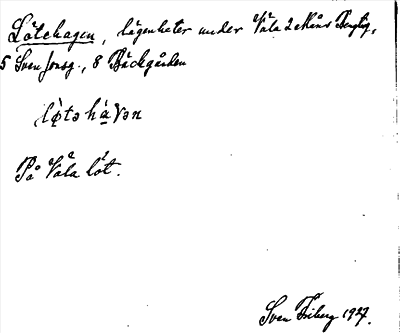 Lötehagen, lägenheter under Våla 2 Måns Bengtsg.,
5 Svensjonsg., 8 Bäckgården
lø̀tə hà̱γən
På Våla löt.
Sven Friberg 1927.